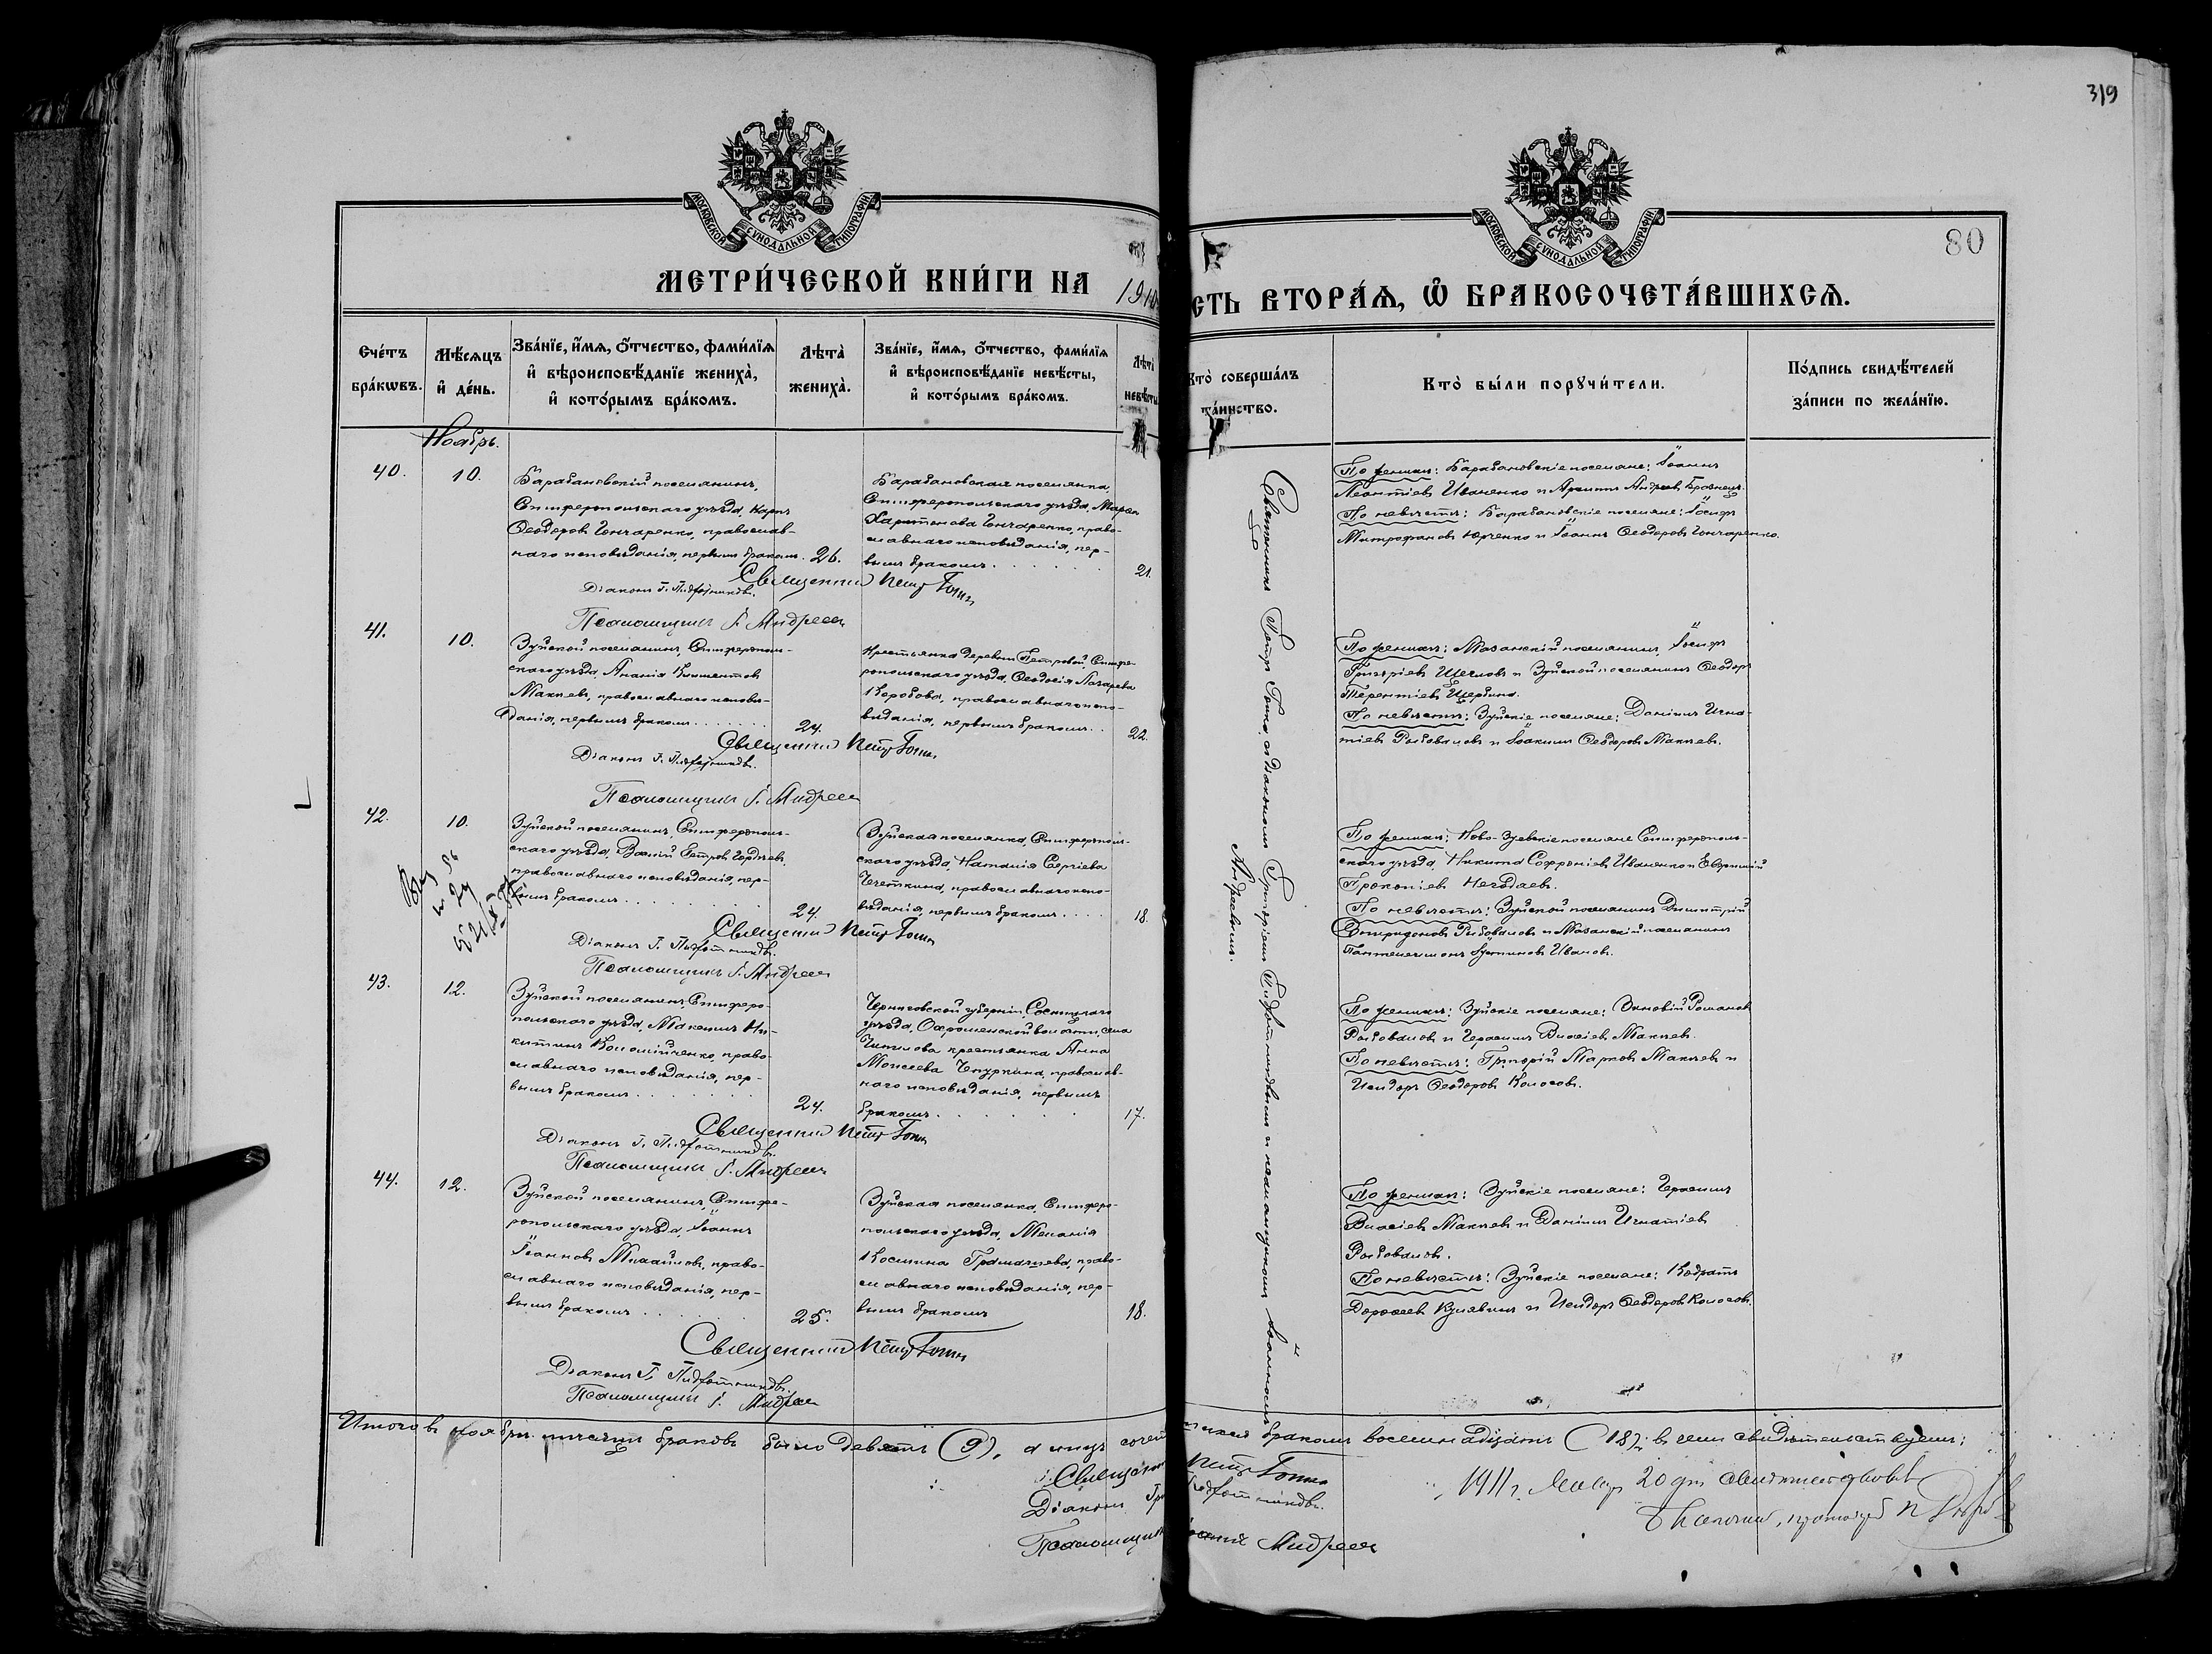 319
МОСКОВСКОЙ СУНОДАЛЬНОЙ ТИПОГРАФІИ
МОСКОВСКОЙ СУНОДАЛЬНОЙ ТИПОГРАФІИ
80
МЕТРИ́ЧЕСКОЙ КНИ́ГИ НА 1910
СТЬ ВТОРА́Ѧ, Ѽ БРАКОСОЧЕТА́ВШИХСѦ.
Сче́тъ бра́кѡвъ.
Мѣ́сѧцъ и҆ де́нь.
Зва́нїе, и҆́мѧ, о҆́тчество, фами́лїѧ и҆ вѣроисповѣ́данїе жениха̀, и҆ кото́рымъ бра́комъ.
Лѣта̀ жениха̀.
Зва́нїе, и҆́мѧ, о҆́тчество, фами́лїѧ и҆ вѣроисповѣ́данїе невѣ́сты, и҆ кото́рымъ бра́комъ.
Лѣта̀ невѣ́сты
Кто̀ соверша́лъ та́инство.
Кто̀ бы́ли порꙋчи́тели.
По́дпись свидѣ́телей за́писи по жела́нїю.
Ноябрь.
40.
10.
Барабановскій поселянинъ,
Симферопольскаго уѣзда, Карпъ
Ѳеодоровъ Гончаренко, православ-
наго исповѣданія, первымъ бракомъ.
26.
Барабановская поселянка,
Симферопольскаго уѣзда, Марѳа
Харитонова Гончаренко, право-
славнаго исповѣданія, пер-
вымъ бракомъ
21.
Священникъ Петръ Гопка
Діаконъ Г. Пидготниковъ.
Псаломщикъ І. Андреевъ
По женихѣ: Барабановскіе поселяне: Іоаннъ
Леонтіевъ Иваненко и Архипъ Андреевъ
По невѣстѣ: Барабановскіе поселяне: Іосифъ
Митрофановъ Юрченко и Іоаннъ Ѳеодоровъ Гончаренко.
41.
10.
Зуйской поселянинъ, Симферополь-
скаго уѣзда, Ананія Климентовъ
Макѣевъ, православнаго исповѣ-
данія, первымъ бракомъ
24.
Крестьянка деревни Петровой, Симфе-
ропольскаго уѣзда, Ѳеодосія Лазарева
Коробова, православнаго испо-
вѣданія, первымъ бракомъ
22.
Священникъ Петръ Гопка
Діаконъ Г. Пидготниковъ.
Псаломщикъ І. Андреевъ
По женихѣ: Мазанскій поселянинъ, Іосифъ
Григоріевъ Щегловъ и Зуйской поселянинъ Ѳеодоръ
Терентіевъ Щербина.
По невѣстѣ: Зуйскіе поселяне: Даніилъ Игна-
тіевъ Рыбоваловъ и Іоакимъ Ѳеодоровъ Макѣевъ.
42.
10.
Зуйской поселянинъ, Симферополь-
скаго уѣзда, Василій Петровъ Гордѣевъ,
православнаго исповѣданія, пер-
вымъ бракомъ
24.
Зуйская поселянка, Симферополь-
скаго уѣзда, Наталія Сергіева
Чечеткина, православнаго испо-
вѣданія, первымъ бракомъ
18.
Священникъ Петръ Гопка
Діаконъ Г. Пидготниковъ.
Псаломщикъ І. Андреевъ
По женихѣ: Ново-Зуевскіе поселяне Симферополь-
скаго уѣзда, Никита Софроніевъ Иваненко и Евѳимій
Прокопіевъ Негодаевъ.
По невѣстѣ: Зуйской поселянинъ Димитрій
Спиридоновъ Рыбоваловъ и Мазанскій поселянинъ
Пантелеимонъ Іустиновъ Ивановъ.
43.
12.
Зуйской поселянинъ Симферо-
польскаго уѣзда, Максимъ Ни-
китинъ Коломійченко, право-
славнаго исповѣданія, пер-
вымъ бракомъ
24.
Черниговской губерніи, Сосницкаго
уѣзда, волости, села
крестьянка Анна
Моисеева Чепуркина, православ-
наго исповѣданія, первымъ
бракомъ
17.
Священникъ Петръ Гопка
Діаконъ Г. Пидготниковъ.
Псаломщикъ І. Андреевъ
По женихѣ: Зуйскіе поселяне: Зиновій Романовъ
Рыбоваловъ и Герасимъ Власіевъ Макѣевъ.
По невѣстѣ: Григорій Марковъ Макѣевъ и
Исидоръ Ѳеодоровъ Колосовъ.
44.
12.
Зуйской поселянинъ, Симфе-
ропольскаго уѣзда, Іоаннъ
Іоанновъ Михайловъ, право-
славнаго исповѣданія, пер-
вымъ бракомъ
25.
Зуйская поселянка, Симферо-
польскаго уѣзда, Меланія
Космина Громачева, право-
славнаго исповѣданія, пер-
вымъ бракомъ
18.
Священникъ Петръ Гопка
Діаконъ Г. Пидготниковъ.
Псаломщикъ І. Андреевъ
По женихѣ: Зуйскіе поселяне: Герасимъ
Власіевъ Макѣевъ и Даніилъ Игнатіевъ
Рыбоваловъ.
По невѣстѣ: Зуйскіе поселяне: Кодратъ
Дороѳеевъ Кулявинъ и Исидоръ Ѳеодоровъ Колосовъ.
Священникъ Петръ Гопка, съ діакономъ Григоріемъ Пидготниковымъ и псаломщикомъ Іоанномъ
Андреевымъ.
Итого въ ноябрѣ мѣсяцѣ браковъ было девять (9), а лицъ сочет
шихся бракомъ восемнадцать (18); въ чемъ свидѣтельствуемъ:
Священ Петръ Гопка
Діаконъ Гри Пидготниковъ.
Псаломщик Андреевъ
1911 г. 20 дня свидѣтельствовалъ
Благочин., протоіерей